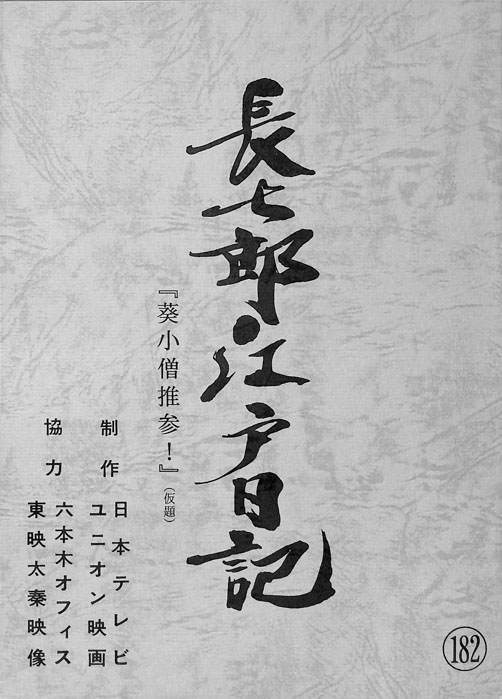 長七郎江戸日記
『葵小僧推参！』（仮題）
制作 日本テレビ
ユニオン映画
協力 六本木オフィス
東映太秦映像
182